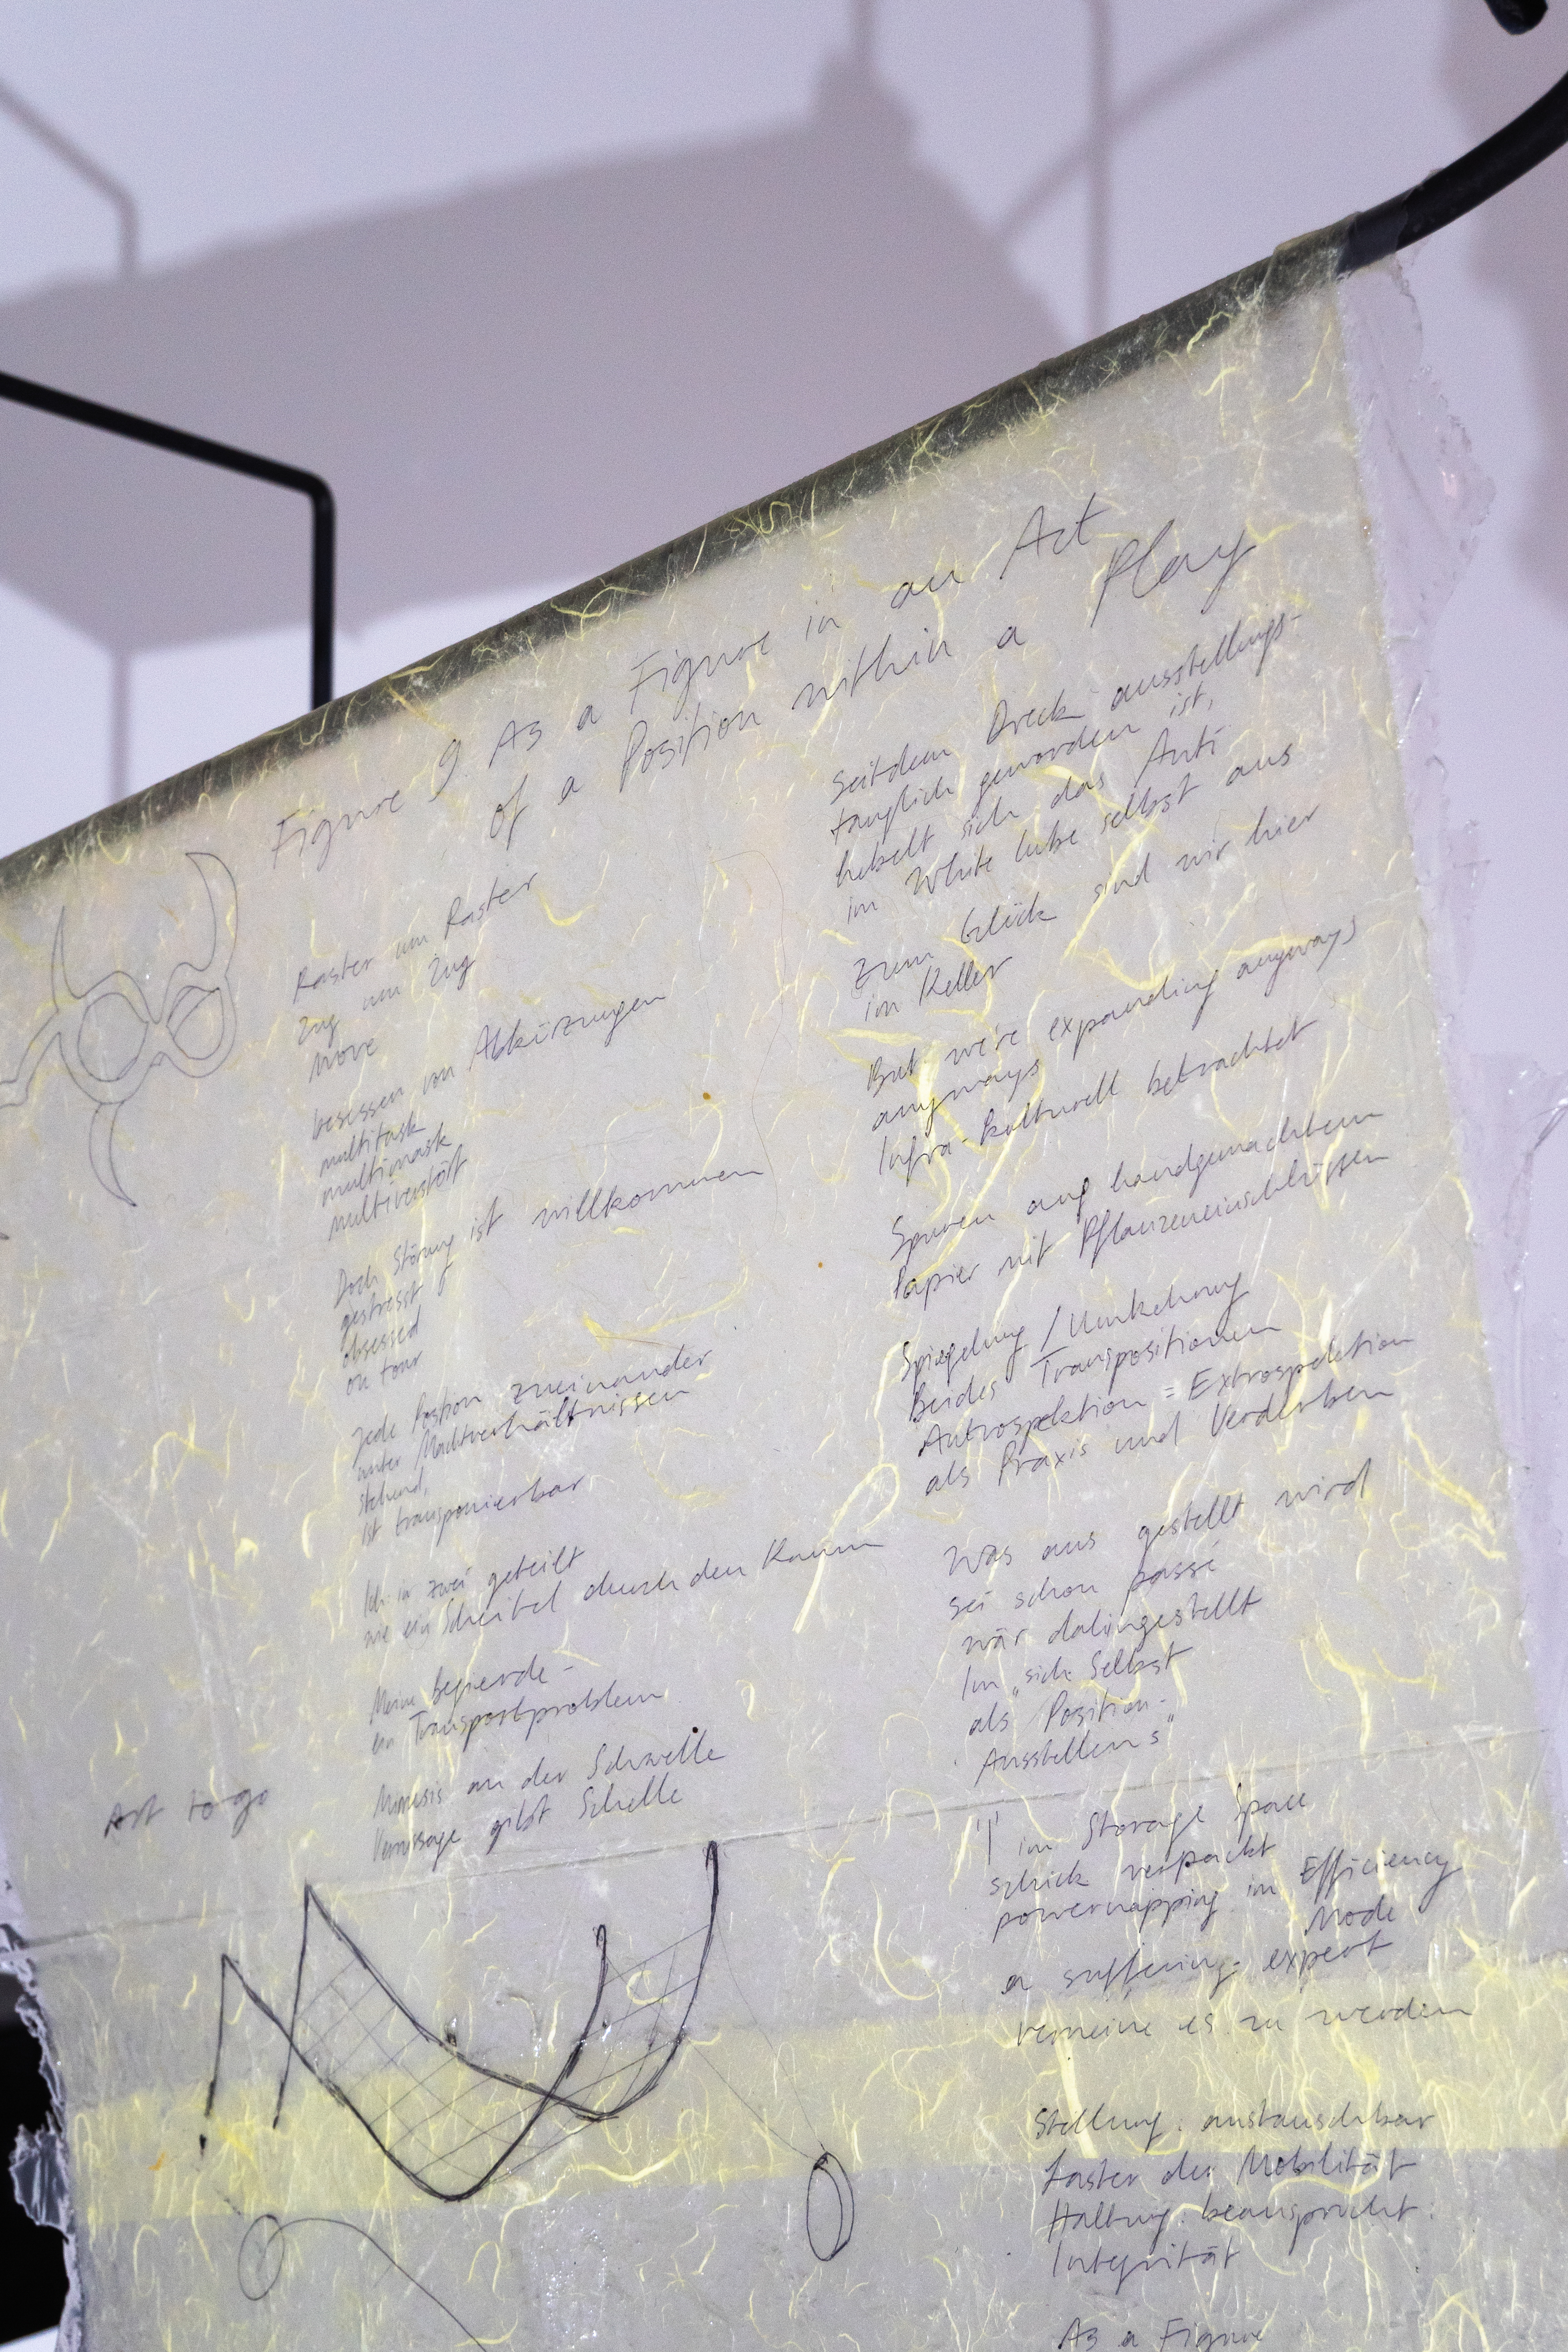 Figure 9 As a Figure in an Act
of a Position within a Play
Raster um Raster
Zug um Zug
Move
besessen von Abkürzungen
multitask
multimask
multiverstört
Doch Störung ist willkommen
gestresst &
obsessed
on tour
Jede Postion zueinander
unter Machtverhältnissen
stehend,
ist transponierbar
Ich in zwei geteilt
wie ein Scheitel durch den Raum
Meine Begierde -
ein Transportproblem
Mimesis an der Schwelle
Vernissage gibt Schelle
Art to go
Seitdem Dreck ausstellungs-
tauglich geworden ist,
hebelt sich das Anti
im White Cube selbst aus
Zum Glück sind wir hier
im Keller
But we're expanding anyways
anyways
Infra-kulturell betrachtet
Spuren auf handgemachtem
Papier mit Pflanzeneinschlüssen
Spiegelung / Umkehrung
Beides Transpositionen
Autrospektion = Extrospektion
als Praxis und Verderben
Was aus gestellt wird
sei schon passé
wär dahingestellt
Im „sich Selbst
als Position-
Ausstellens"
"I" im Storage Space
schick verpackt
powernapping im Efficiency
Mode
a suffering expert
verneine es zu werden
Stellung: austauschbar
Laster der Mobilität
Haltung: beansprucht
Integrität
As a Figure